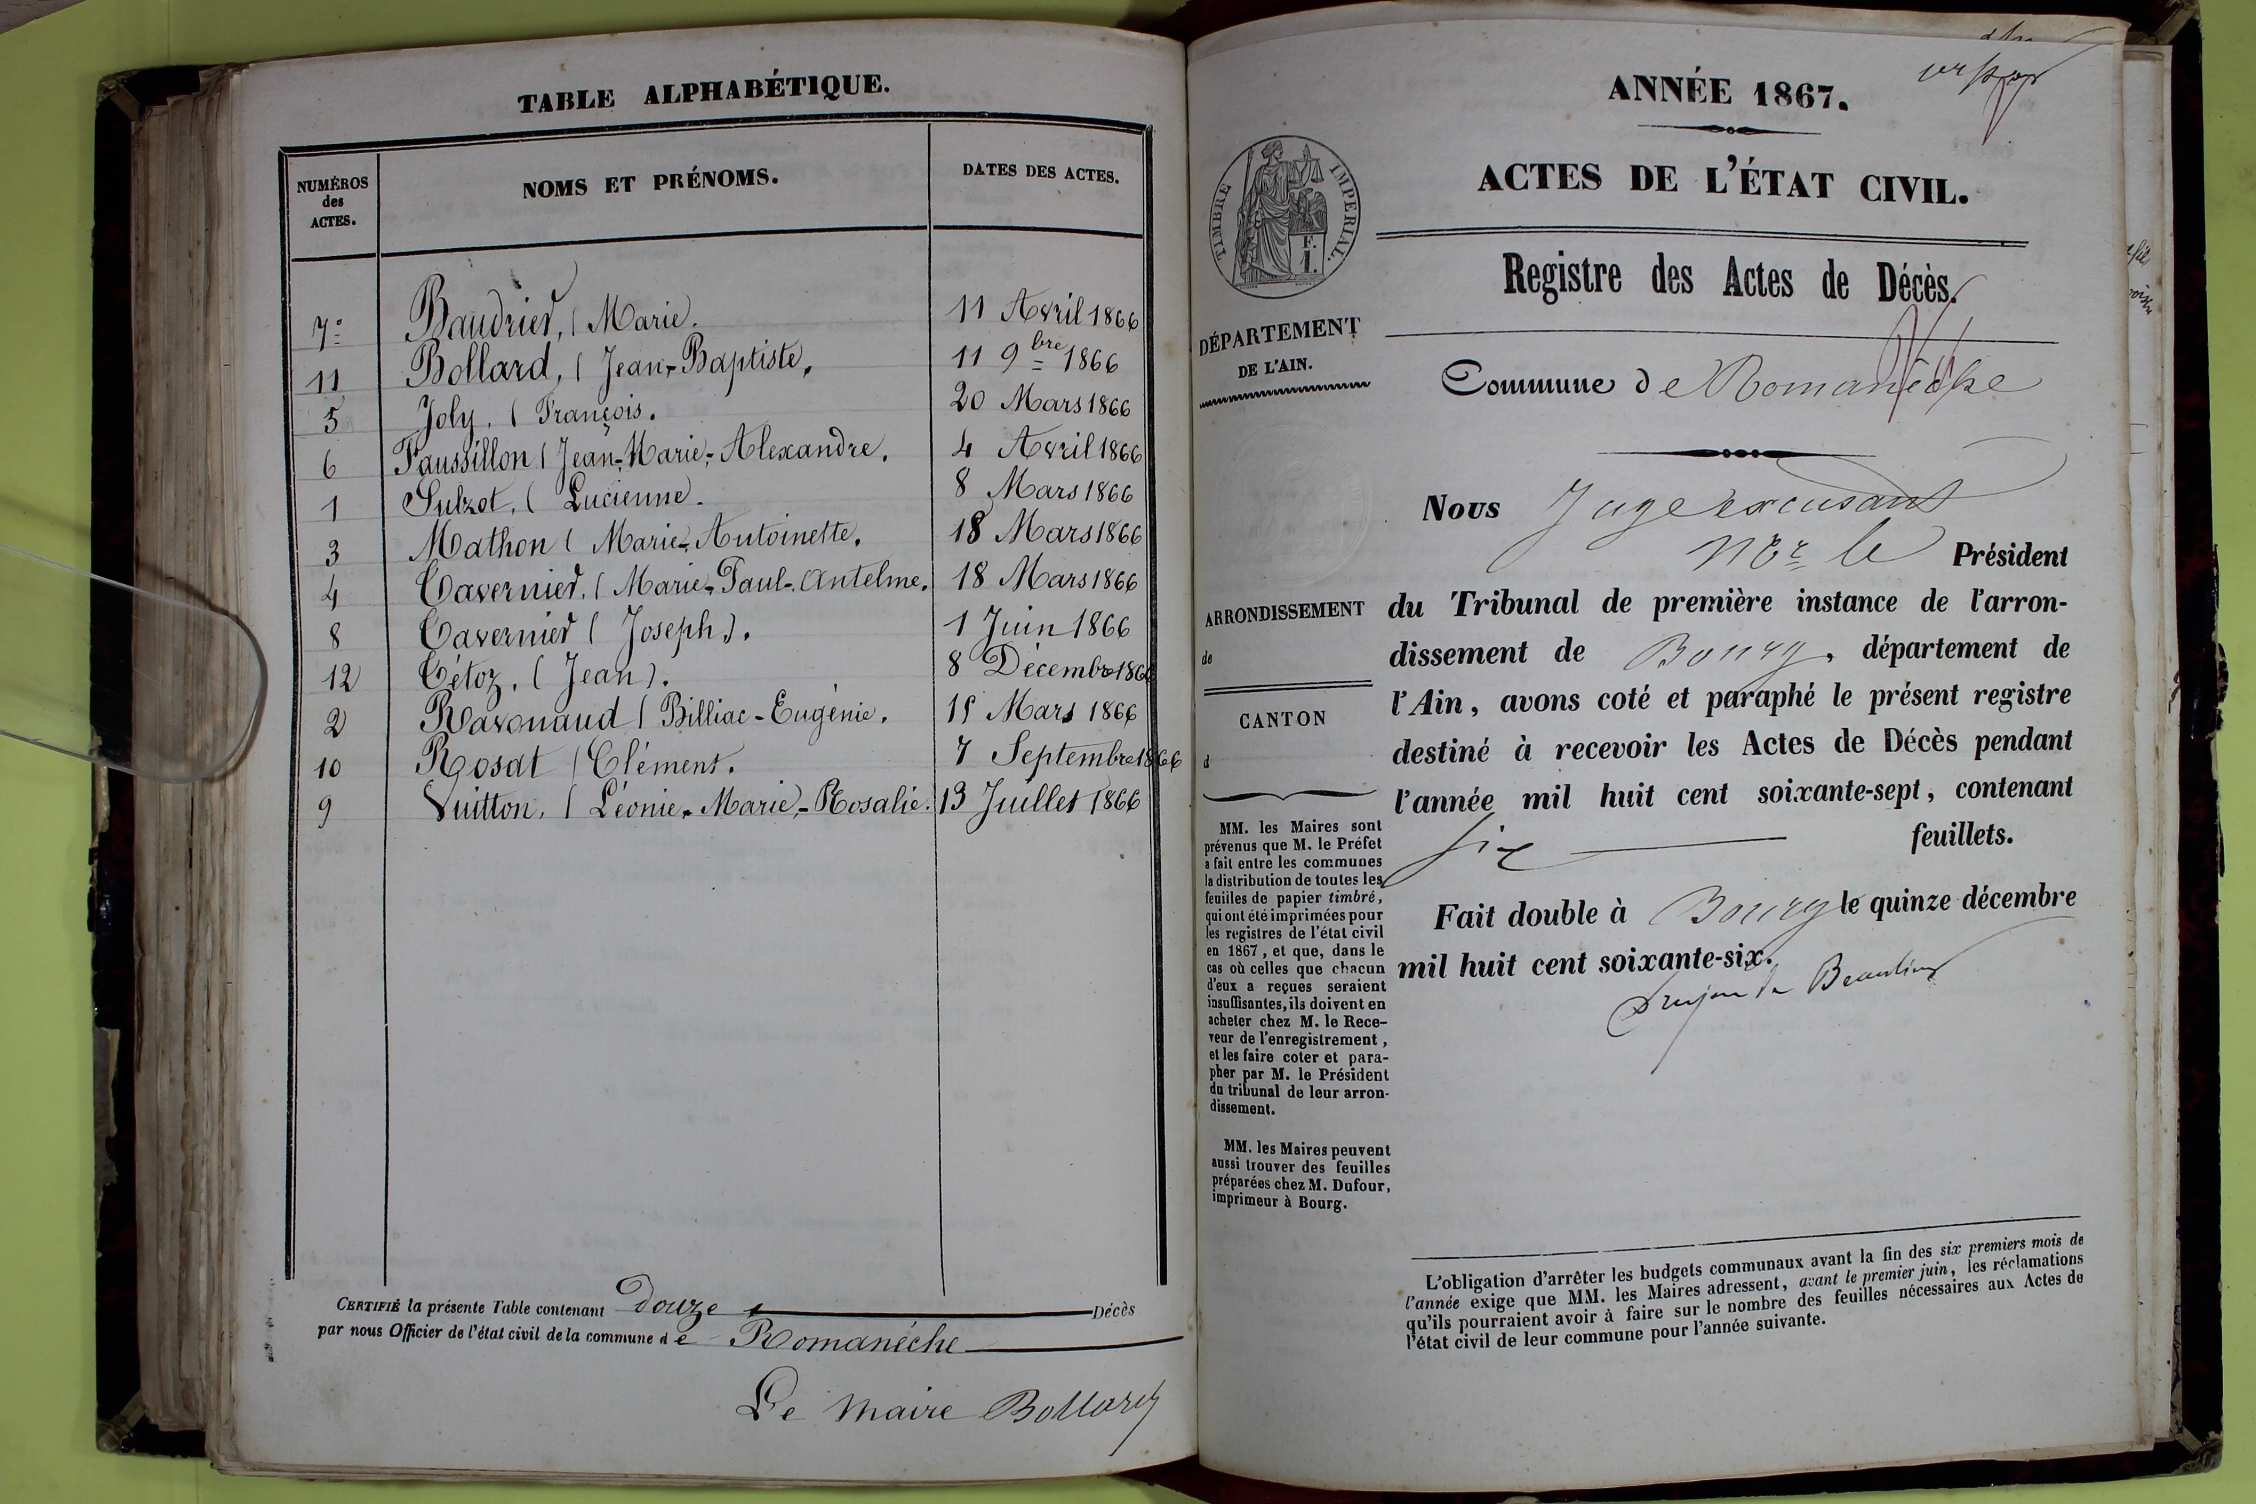 TABLE ALPHABÉTIQUE.
NUMÉROS des ACTES. NOMS ET PRÉNOMS. DATES DES ACTES.
7º Baudrier, (Marie. 11 Avril 1866
11 Bollard, (Jean-Baptiste, 11 9bre 1866
5 Joly, (François. 20 Mars 1866
6 (Jean-Marie-Alexandre. 4 Avril 1866
1 (Lucienne. 8 Mars 1866
3 Mathon (Marie-Antoinette. 18 Mars 1866
4 Tavernier, (Marie-Paul-Antelme. 18 Mars 1866
8 Tavernier (Joseph). 1 Juin 1866
12 Tétoz, (Jean). 8 Décembre 1866
2 Ravonaud (Billiac-Eugénie. 15 Mars 1866
10 Rosat (Clément. 7 Septembre 1866
9 Vuitton, (Léonie-Marie-Rosalie. 13 Juillet 1866
CERTIFIÉ la présente Table contenant douze Décès
par nous Officier de l'état civil de la commune de Romanéche
Le Maire Bollard
ANNÉE 1867.
ACTES DE L'ÉTAT CIVIL.
TIMBRE IMPERIAL.
F.
1.
Registre des Actes de Décès.
DÉPARTEMENT
DE L'AIN.
Commune de Romanéche
Nous Juge excusant
Mr le Président
ARRONDISSEMENT
de
CANTON
d
du Tribunal de première instance de l'arron-
dissement de Bourg, département de
l'Ain, avons coté et paraphé le présent registre
destiné à recevoir les Actes de Décès pendant
l'année mil huit cent soixante-sept, contenant
six feuillets.
Fait double à Bourg le quinze décembre
mil huit cent soixante-six.
de Beaulieu
MM. les Maires sont
prévenus que M. le Préfet
a fait entre les communes
la distribution de toutes les
feuilles de papier timbré,
qui ont été imprimées pour
les registres de l'état civil
en 1867, et que, dans le
cas où celles que chacun
d'eux a reçues seraient
insuffisantes, ils doivent en
acheter chez M. le Rece-
veur de l'enregistrement,
et les faire coter et para-
pher par M. le Président
du tribunal de leur arron-
dissement.
MM. les Maires peuvent
aussi trouver des feuilles
préparées chez M. Dufour,
imprimeur à Bourg.
L'obligation d'arrêter les budgets communaux avant la fin des six premiers mois de
l'année exige que MM. les Maires adressent, avant le premier juin, les réclamations
qu'ils pourraient avoir à faire sur le nombre des feuilles nécessaires aux Actes de
l'état civil de leur commune pour l'année suivante.